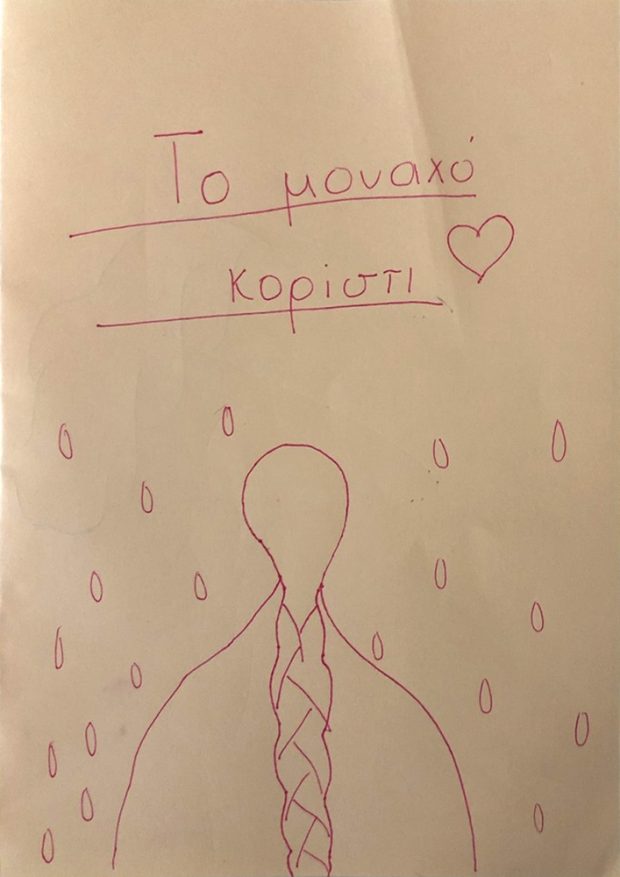 Το μοναχό
κορίστι